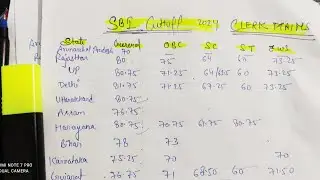 SBI Cutoff 2024 CLERK MAINS
State General OBC SC ST EWS
Arunachal Pradesh 70
Rajasthan 80 75 64 60 73.25
UP 80.75 71.25
Delhi 81.75 71.25 67.25 60 73.50
Uttarakhand 80.75
Assam 76.75
Haryana 80.75 70.75 61.75 80.75
Bihar 78 73
Karnataka 75.25 70 70
Gujarat 76.75 71 68.50 60 71.50
MI NOTE 7 PRO
CAMERA